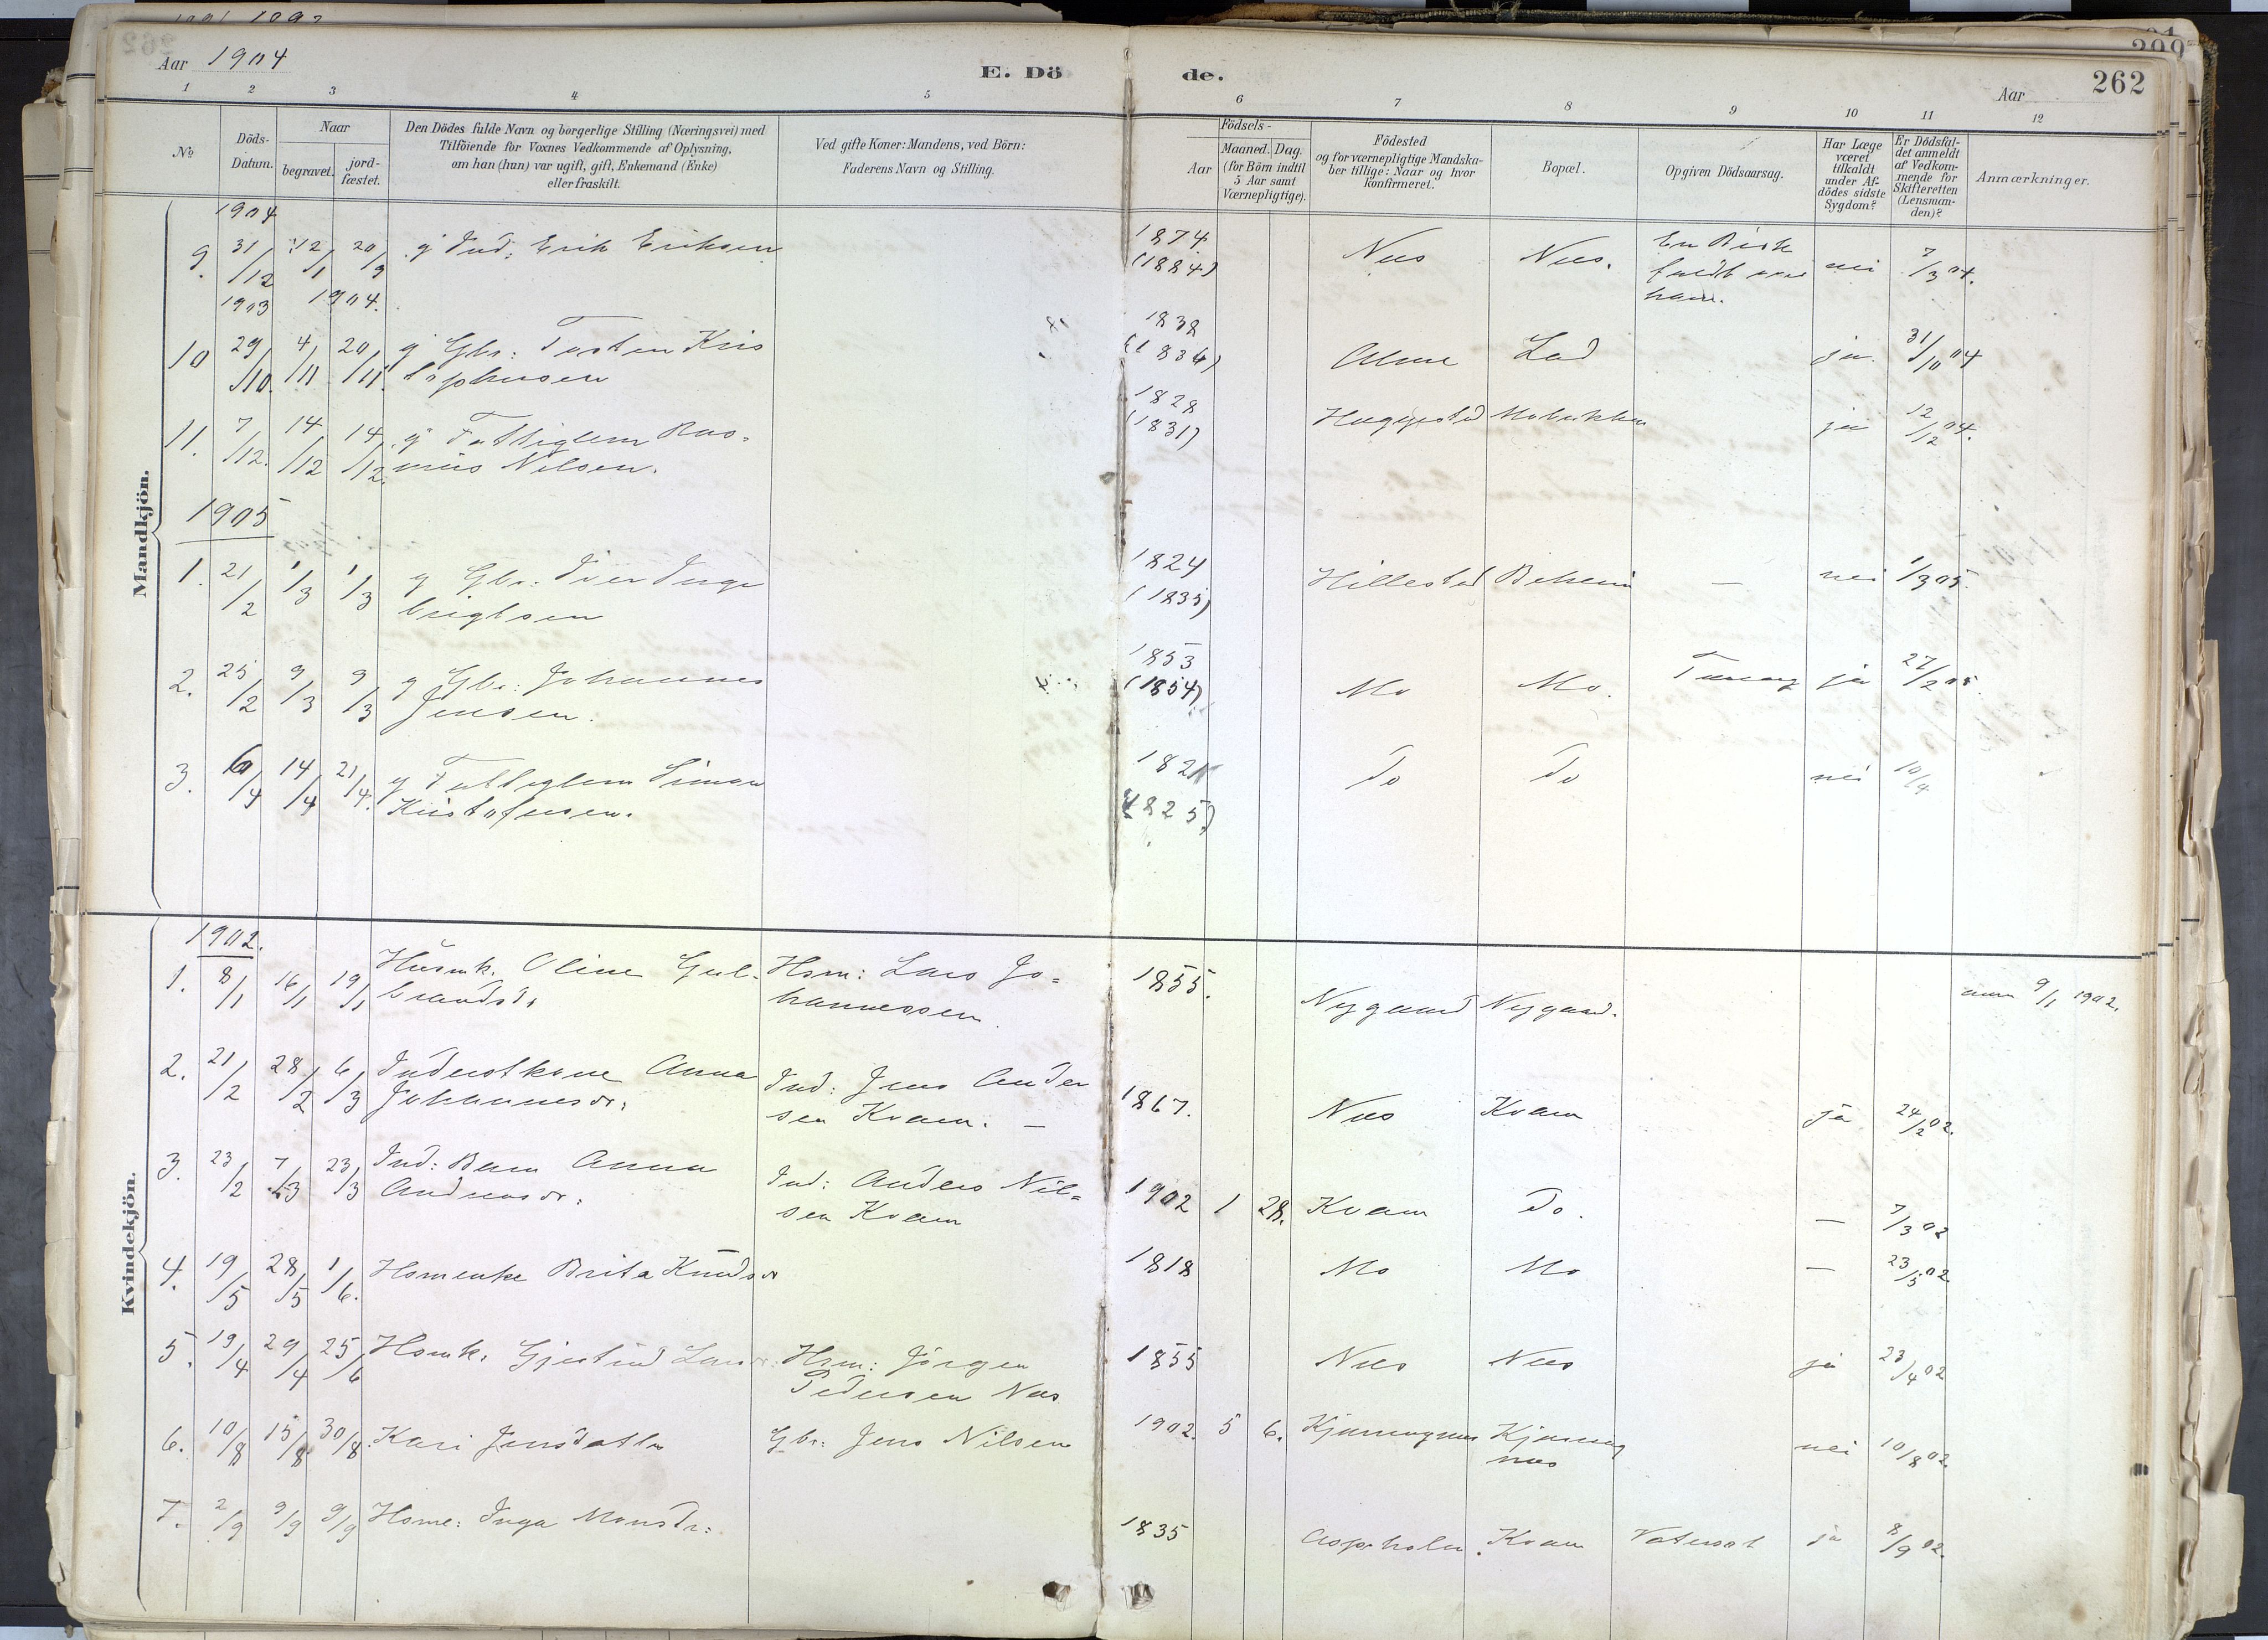 Aar 1904
E. Döde.
Aar
262
1 2 3 4 5 6 7 8 9 10 11 12
No
Döds-Datum.
Naar
begravet. jordfæstet.
Den Dödes fulde Navn og borgerlige Stilling (Næringsvei) med
Tilföiende for Voxnes Vedkommende af Oplysning,
om han (hun) var ugift, gift, Enkemand (Enke)
eller fraskilt.
Ved gifte Koner: Mandens, ved Börn:
Faderens Navn og Stilling.
Födsels-
Aar Maaned. Dag.
(for Börn indtil
5 Aar samt
Værnepligtige).
Födested
og for værnepligtige Mandska-
ber tillige: Naar og hvor
konfirmeret.
Bopæl.
Opgiven Dödsaarsag.
Har Læge
været
tilkaldt
under Af-
dödes sidste
Sygdom?
Er Dödsfal-
det anmeldt
af Vedkom-
mende for
Skifteretten
(Lensman-
den)?
Anmærkninger.
Mandkjön.
1904
9. 31/12 12/1 20/9 g Ind: Erik Eriksen 1874 (1884) Nees Nees. nei 7/3 04.
ham.
1903 1904.
10 29/10. 4/11 20/11. g Gbr: Tosten Kris
tophersen 1838 (1836) Lad ja 31/10 04
11. 7/12. 14/12 14/12. g Fattiglem Ras-
mus Nilsen. 1828 (1831) ja 12/12 04.
1905
1. 21/2 1/3 1/3 g Gbr: Iver Inge
brigtsen 1824 (1835) Hillestad — nei 1/3 05.
2. 25/2 9/3 9/3 g Gbr: Johannes
Jensen. 1853 (1854) Mo Mo. ja 27/2 05.
3. 6/4 14/4 21/4. g Fattiglem Simon
Kristofersen. 1821 (1825) Do Do nei 10/4
Kvindekjön.
1902.
1. 8/1 16/1 19/1 Husmk. Oline Gul-
brandsdr Hsm: Lars Jo-
hannessen. 1855. Nygaard Nygaard. anm 9/1 1902.
2. 21/2 28/2 6/3 Inderstkone Anna
Johannesdr. Ind: Jens Ander
sen Kvam. — 1867. Nees Kvam ja 24/2 02.
3. 23/2 7/3 23/3 Ind: Barn Anna
Andersdr. Ind: Anders Nil-
sen Kvam 1902 1 28. Kvam Do. — 7/3 02
4. 19/5 28/5 1/6. Hsmenke Brita Knudsdr 1818 Mo Mo — 23/5 02
5. 19/4 29/4 25/6 Hsmk. Gjertrud Larsdr: Hsm: Jörgen
Pedersen Nes 1855 Nees Nees ja 23/4 02
6. 10/8 15/8 30/8. Kari Jensdatter Gbr: Jens Nilsen 1902. 5 6. Kjørnungnes Kjørnung
nes nei 10/8 02.
7. 2/9 9/9 9/9 Hsme: Inga Monsdr: 1835 Aspeholm. Kvam Vatersot ja 8/9 02.